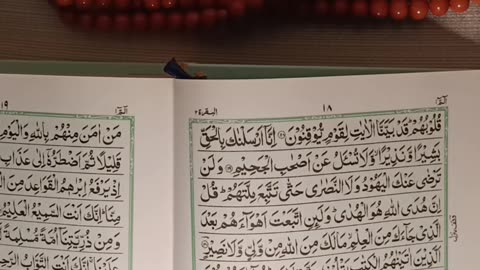 الٓمّٓ ١
١٨
البقرة ٢
قُلُوْبُهُمْ قَدْ بَيَّنَّا الْاٰيٰتِ لِقَوْمٍ يُّوْقِنُوْنَ ﴿١١٨﴾ اِنَّاۤ اَرْسَلْنٰكَ بِالْحَقِّ
بَشِيْرًا وَّنَذِيْرًا وَّلَا تُسْـَٔلُ عَنْ اَصْحٰبِ الْجَحِيْمِ ﴿١١٩﴾ وَلَنْ
تَرْضٰى عَنْكَ الْيَهُوْدُ وَلَا النَّصٰرٰى حَتّٰى تَتَّبِعَ مِلَّتَهُمْ قُلْ
اِنَّ هُدَى اللّٰهِ هُوَ الْهُدٰى وَلَئِنِ اتَّبَعْتَ اَهْوَآءَهُمْ بَعْدَ
الَّذِيْ جَآءَكَ مِنَ الْعِلْمِ مَا لَكَ مِنَ اللّٰهِ مِنْ وَّلِيٍّ وَّلَا نَصِيْرٍ ﴿١٢٠﴾
اَلَّذِيْنَ اٰتَيْنٰهُمُ الْكِتٰبَ
البقرة ٢
١٩
مَنْ اٰمَنَ مِنْهُمْ بِاللّٰهِ وَالْيَوْمِ
قَلِيْلًا ثُمَّ اَضْطَرُّهٗۤ اِلٰى عَذَابِ
اِذْ يَرْفَعُ اِبْرٰهٖمُ الْقَوَاعِدَ مِنَ
مِنَّا اِنَّكَ اَنْتَ السَّمِيْعُ الْعَلِيْمُ
وَمِنْ ذُرِّيَّتِنَاۤ اُمَّةً مُّسْلِمَةً
عَلَيْنَا اِنَّكَ اَنْتَ التَّوَّابُ الرَّحِيْمُ